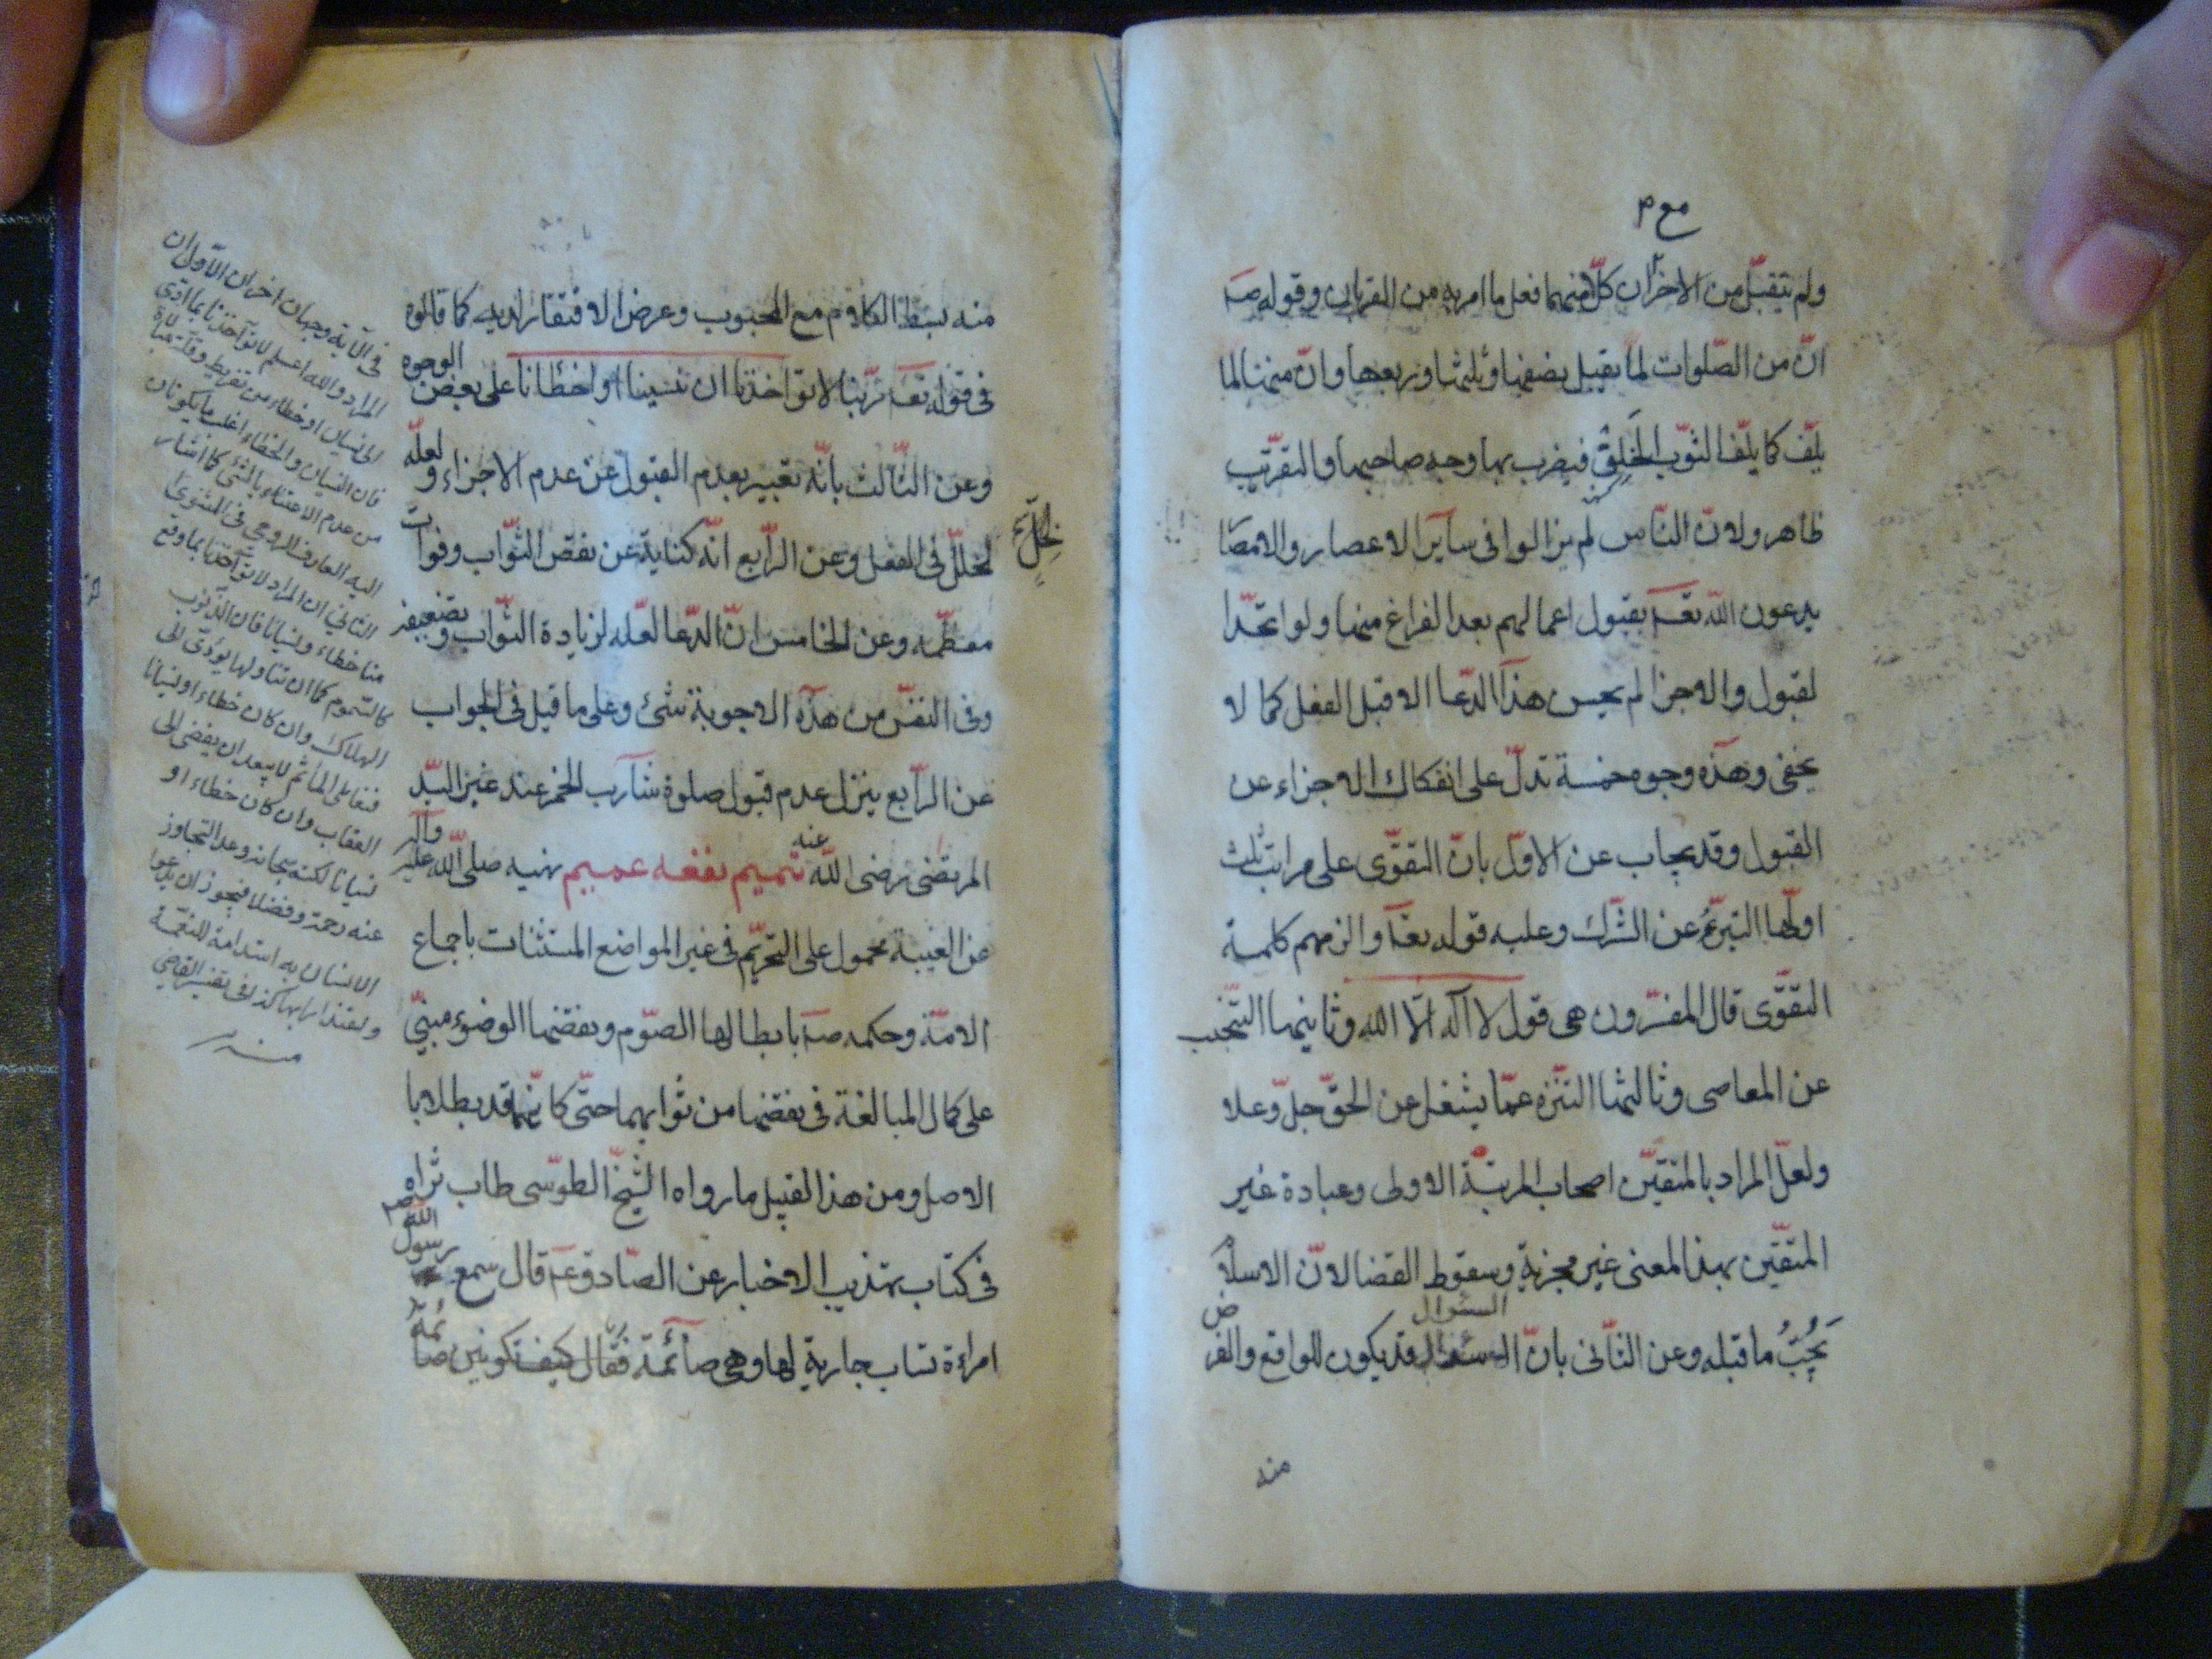 مع م
ولم يتقبل من الاخر ان كلّا منهما فعل ما امر به من القربان وقوله صـ
انّ من الصّلوات لما يقبل نصفها وثلثها وربعها وانّ منها لما
يلفّ كما يلفّ الثوب الخَلِق فيضرب بها وجه صاحبها والتقريب
ظاهر ولانّ النّاس لم يزالوا فى ساير الاعصار والامصا
يدعون الله تعـ بقبول اعمالهم بعد الفراغ منها ولو اتحدا
لقبول والاجزا لم يحسن هذا الدّعا الا قبل الفعل كما لا
يخفى وهذه وجوه خمسة تدلّ على انفكاك الاجزاء عن
القبول وقد يجاب عن الاوّل بانّ التقوى على مراتب ثلث
اولها التبرّء عن الشّرك وعليه قوله تعـ والزمهم كلمة
التقوى قال المفسّرون هى قول لا اله الّا الله وثانيها التجنب
عن المعاصى وثالثها التنزه عمّا يشغل عن الحقّ جلّ وعلا
ولعلّ المراد بالمتقين اصحاب المرتبة الاولى وعبادة غير
المتقين بهذا المعنى غير مجزية وسقوط القضا لانّ الاسلا
يَجُبُّ ما قبله وعن الثّانى بانّ السؤال قد يكون للواقع والغر
السئوال
ض
منه
منه بسط الكلام مع المحبوب وعرض الافتقار لديه كما قالوه
فى قوله تعـ ربّنا لا تؤاخذنا ان نسينا او اخطانا على بعض الوجوه
وعن الثّالث بانّه تعبير بعدم القبول عن عدم الاجزاء ولعلّه
لخلل فى الفعل وعن الرّابع انّه كناية عن نقص الثّواب وفوات
معظمه وعن الخامس انّ الدّعا لعلّه لزيادة الثّواب وتضعيفه
وفى النفس من هذه الاجوبة شئ وعلى ما قيل فى الجواب
عن الرّابع ينزل عدم قبول صلوة شارب الخمر عند غير السّيّد
المرتضى رضى الله عنه تتميم نفعه عميم نهيه صلى الله عليه وآله
عن الغيبة محمول على التحريم فى غير المواضع المستثنات باجماع
الامّة وحكمه صـ بابطالها الصّوم ونقضها الوضوء مبنىّ
على كمال المبالغة فى نقضها من ثوابهما حتّى كانّهما قد بطلا با
الاصل ومن هذا القبيل ما رواه الشّيخ الطوسى طاب ثراه
فى كتاب تهذيب الاخبار عن الصّادق عـ قال سمع رسول الله صـ
امراءة تساب جارية لها وهى صائمة فقال كيف تكونين صائمة
لِخَلَلٍ
فى الآية وجهان اخران الاول ان
المراد والله اعلم لا تؤاخذنا بما ادّى
الى نسيان او خطاء من تفريط وقلة مبالاة
فان النسيان والخطاء اغلب ما يكونان
من عدم الاعتناء بالشئ كما اشار
اليه العارف الرومى فى المثنوى
الثانى ان المراد لا تؤاخذنا بما وقع
منا خطاء ونسيانا فان الذنوب
كالسموم كما ان تناولها يؤدى الى
الهلاك وان كان خطاء او نسيانا
فتعاطى المآثم لا يبعد ان يفضى الى
العقاب وان كان خطاء او
نسيانا لكنه سبحانه وعد التجاوز
عنه رحمة وفضلا فيجوز ان يدعوا
الانسان به استدامة للنعمة
واعتدادا بها كذا فى تفسير القاضى
منه